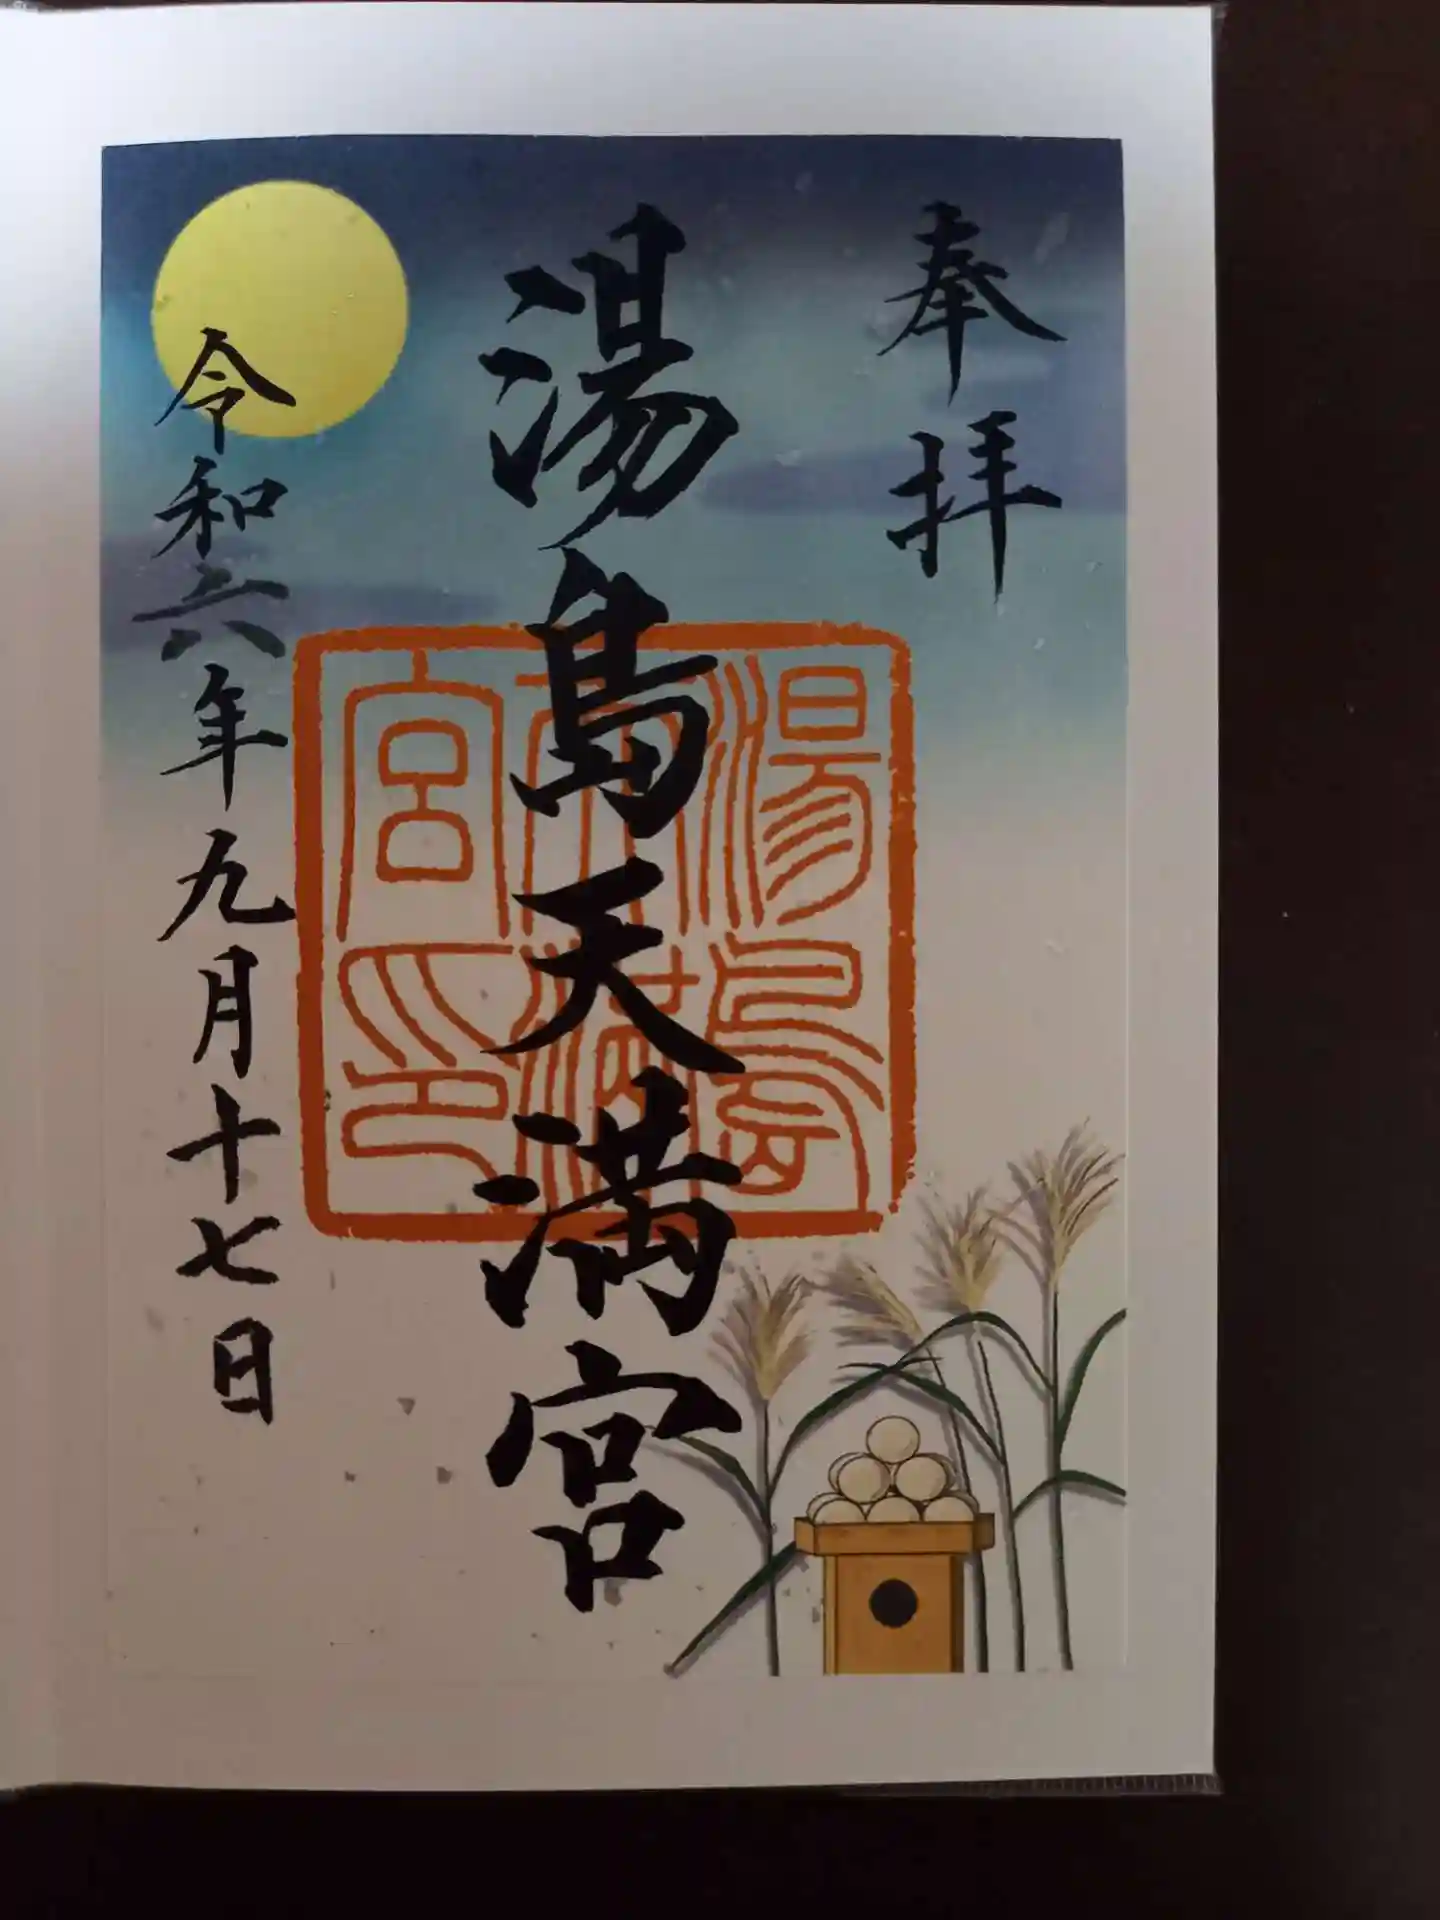 奉拝
湯島天満宮
湯島
天満
宮印
令和六年九月十七日